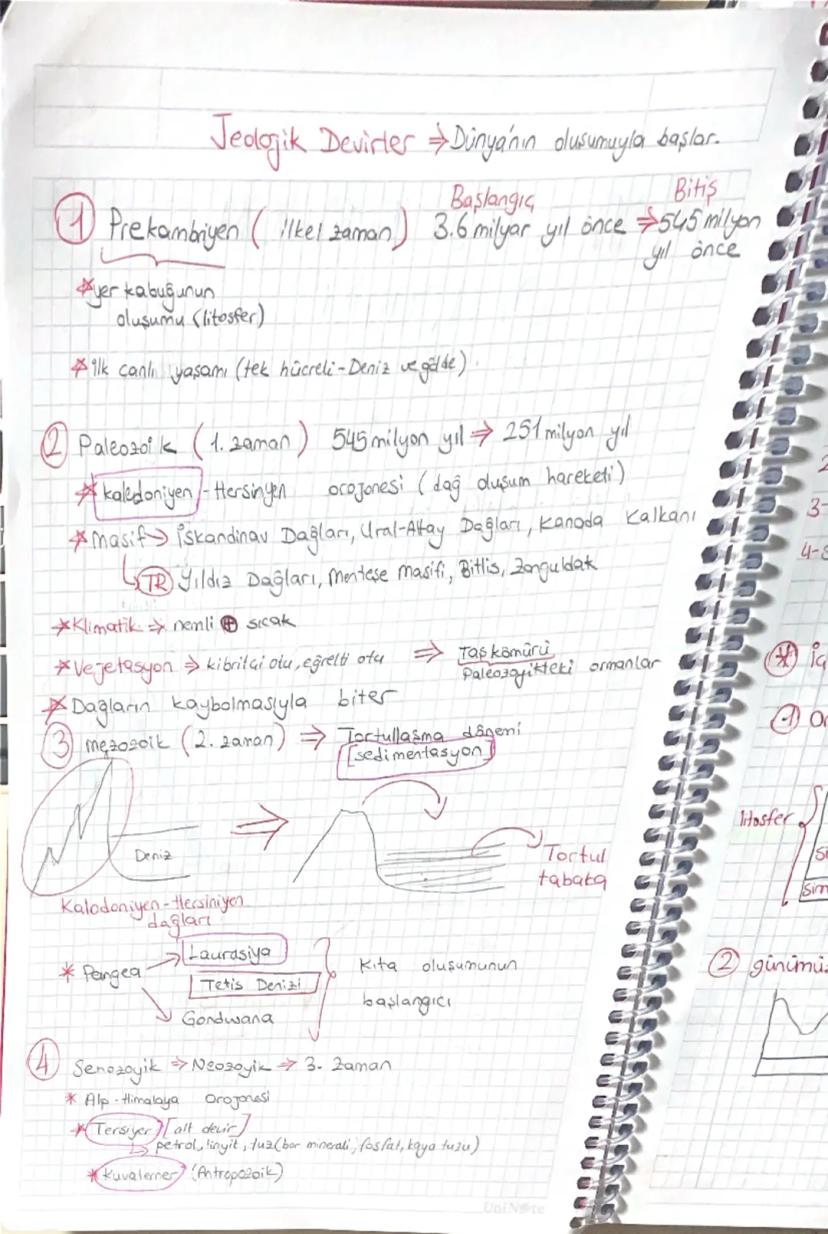 Jeologik Devirler ⇒ Dünya'nın oluşumuyla başlar.
Başlangıç Bitiş
① Prekambriyen ( ilkel zaman) 3.6 milyar yıl önce ⇒ 545 milyon
yıl önce
*yer kabuğunun
oluşumu (litosfer)
*ilk canlı yaşamı (tek hücreli-Deniz ve gölde)
② Paleozoik (1. zaman) 545 milyon yıl ⇒ 251 milyon yıl
*kaledoniyen-Hersinyen orojonesi (dağ oluşum hareketi)
*Masif → İskandinav Dağları, Ural-Altay Dağları, Kanada Kalkanı
TR Yıldız Dağları, Menteşe Masifi, Bitlis, Zonguldak
*Klimatik ⇒ nemli ⊕ sıcak
*Vejetasyon ⇒ kibritçi otu, eğrelti otu ⇒ Taşkömürü
Paleozoyikteki ormanlar
*Dağların kaybolmasıyla biter
③ mezozoik (2. zaman) ⇒ Tortullaşma dönemi
[sedimentasyon]
Deniz
Tortul
tabaka
Kalodoniyen-Hersiniyen
dağları
*Pangea → Laurasiya
Tetis Denizi
Gondwana
Kıta oluşumunun
başlangıcı
④ Senozoyik ⇒ Neozoyik ⇒ 3. Zaman
* Alp-Himalaya Orojonesi
*Tersiyer [alt devir]
petrol, linyit, tuz(bor minerali, fosfat, kaya tuzu)
*Kuvaterner (Antropozoik)
UniNote
3-
litosfer
② günümüz